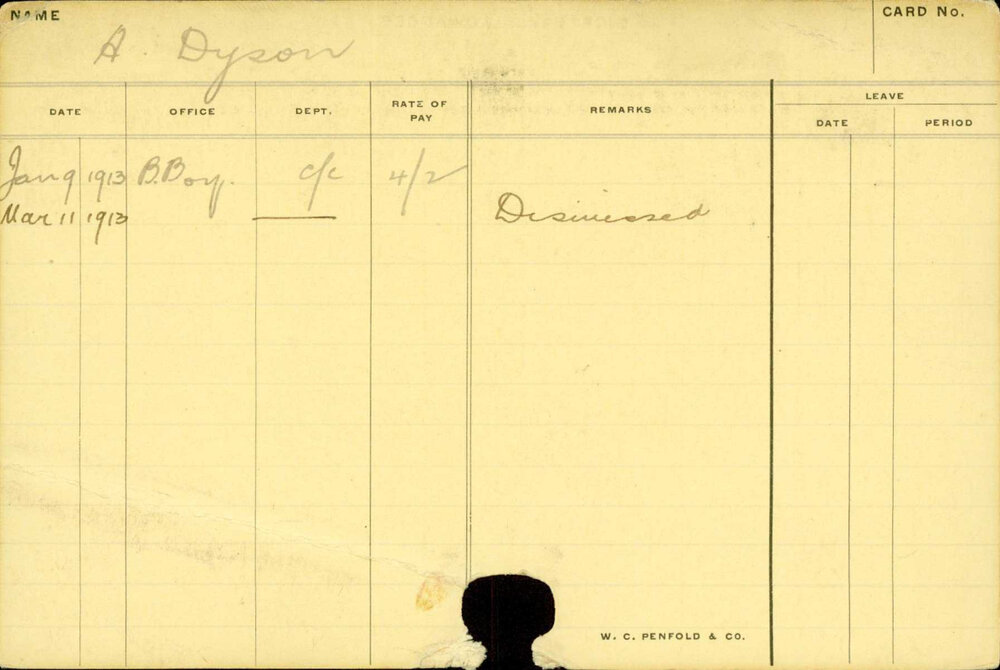 NAME A. Dyson CARD No.
LEAVE
DATE OFFICE DEPT. RATE OF PAY REMARKS DATE PERIOD
Jan 9 1913 B.Boy. c/c 4/2
Mar 11 1913 —— Dismissed
W. C. PENFOLD & CO.